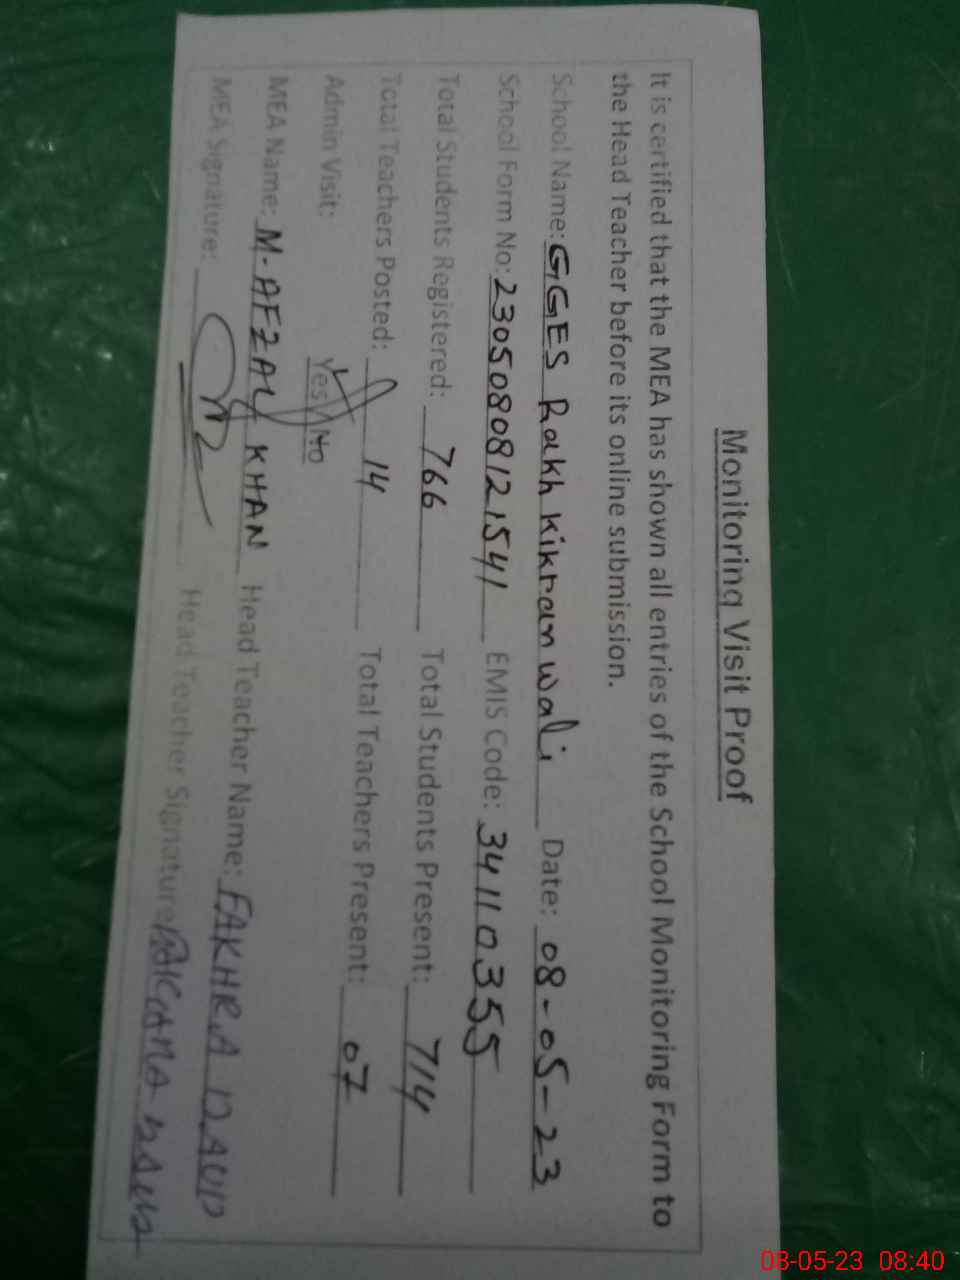 Monitoring Visit Proof
It is certified that the MEA has shown all entries of the School Monitoring Form to
the Head Teacher before its online submission.
School Name: GGES Rakh Kikran wali Date: 08-05-23
School Form No: 23050808121541 EMIS Code: 34110355
Total Students Registered: 766 Total Students Present: 714
Total Teachers Posted: 14 Total Teachers Present: 07
Admin Visit: Yes / No
MEA Name: M-AFZAL KHAN Head Teacher Name: FAKHRA DAUD
MEA Signature: Head Teacher Signature:
08-05-23 08:40